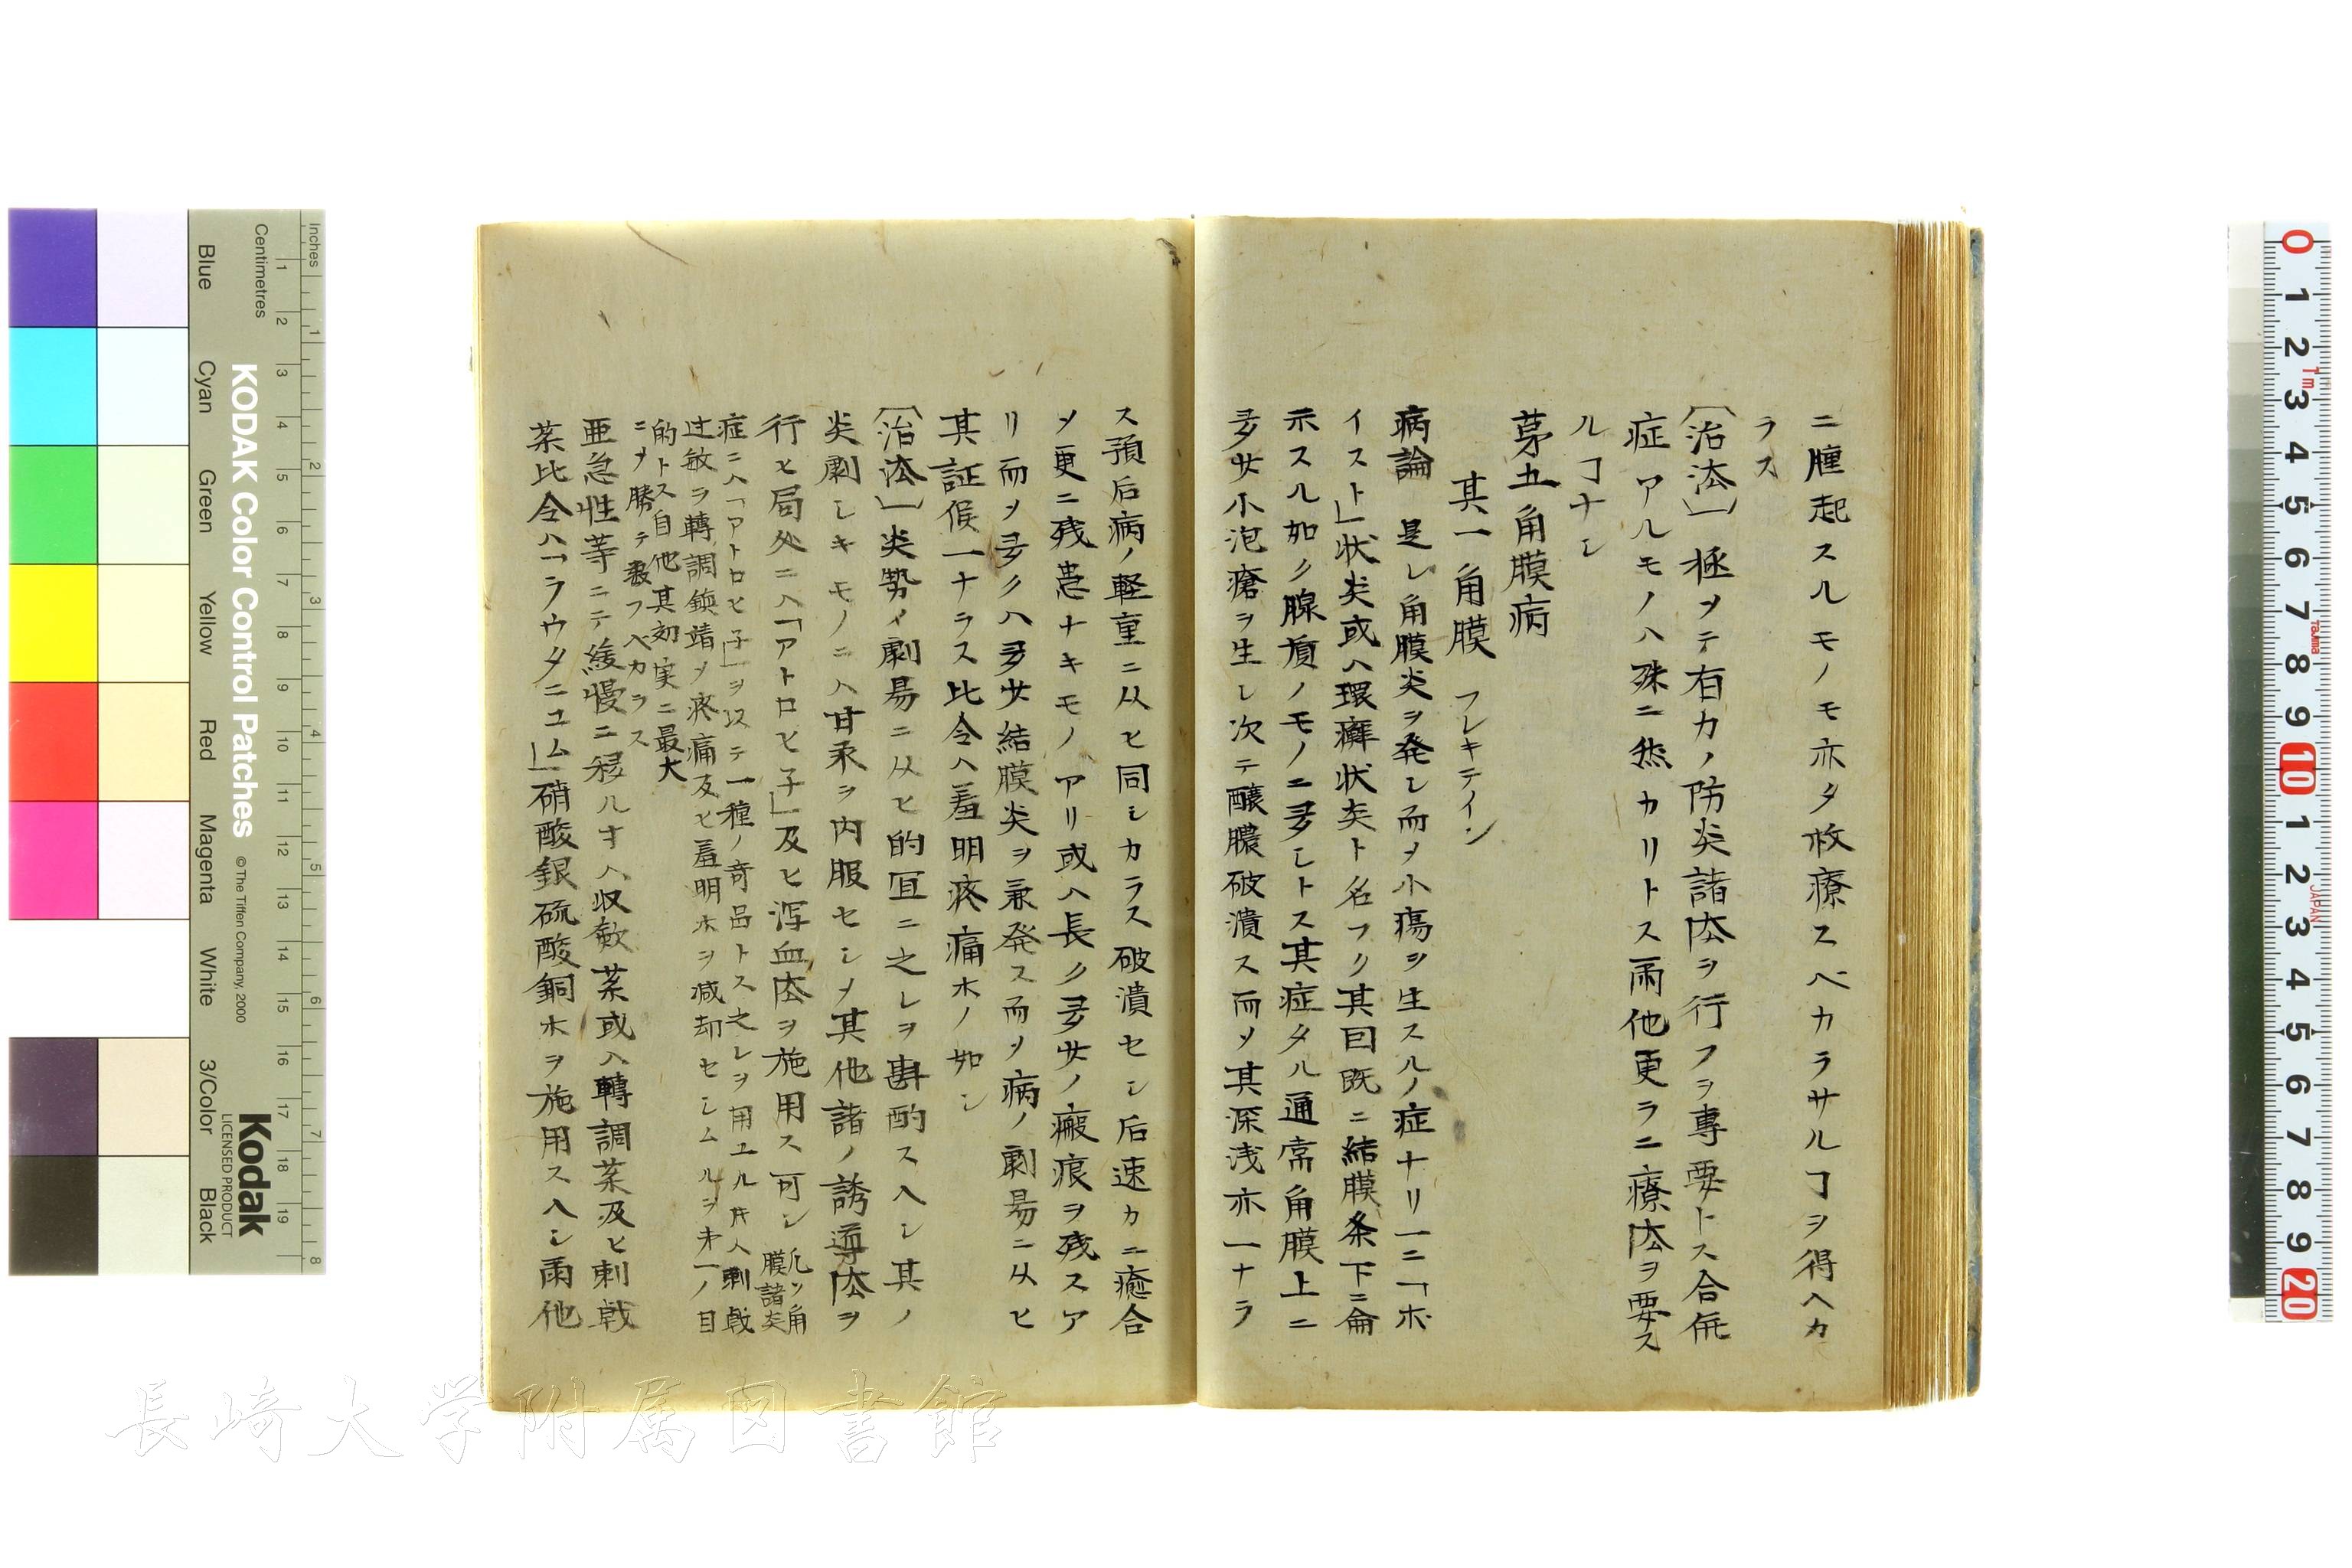 ニ腫起スルモノモ亦タ救療スベカラサルヿヲ得ヘカ
ラス
〔治法〕極メテ有力ノ防炎諸法ヲ行フヲ專要トス合併
症アルモノハ殊ニ然カリトス而他更ラニ療法ヲ要ス
ルヿナシ
苐五角膜病
其一角膜 フレキテイン
病論 是レ角膜炎ヲ発シ而〆小瘍ヲ生スルノ症ナリ一ニ「ホ
イスト」状炎或ハ環癬状炎ト名フク其因既ニ結膜条下ニ侖
示スル如ク腺質ノモノニ多シトス其症タル通常角膜上ニ
多少小泡瘡ヲ生シ次テ醸膿破潰ス而〆其深浅亦一ナラ
ス預后病ノ軽重ニ从ヒ同シカラス破潰セシ后速カニ癒合
〆更ニ残患ナキモノアリ或ハ長ク多少ノ瘢痕ヲ残スア
リ而〆多クハ多少結膜炎ヲ兼発ス而〆病ノ劇易ニ从ヒ
其証候一ナラス比令ヘ羞明疼痛木ノ如シ
〔治法〕炎勢ノ劇易ニ从ヒ的冝ニ之レヲ斟酌スヘシ其ノ
炎劇シキモノニハ甘汞ヲ内服セシメ其他諸ノ誘導法ヲ
行ヒ局処ニハ「アトロヒ子」及ヒ瀉血法ヲ施用ス可シ 凡ソ角
膜諸炎
症ニハ「アトロヒ子」ヲ以テ一種ノ奇品トス之レヲ用ユル片ハ刺戟
过敏ヲ轉調鎮靖〆疼痛及ヒ羞明木ヲ減却セシムルヲ㐧一ノ目
的トス自他其効実ニ最大
ニ〆勝テ数フベカラス
亜急性等ニテ緩慢ニ移ル寸ハ収斂茱或ハ轉調茱及ヒ刺戟
茱比令ハ「ラウタニユム」硝酸銀硫酸銅木ヲ施用スヘシ而他
長崎大学附属図書館
Inches
Centimetres
KODAK Color Control Patches
© The Tiffen Company, 2000
Kodak
LICENSED PRODUCT
Blue Cyan Green Yellow Red Magenta White 3/Color Black
1 2 3 4 5 6 7 8
1 2 3 4 5 6 7 8 9 10 11 12 13 14 15 16 17 18 19
0 1 2 3 4 5 6 7 8 9 10 1 2 3 4 5 6 7 8 9 20
1m
Tajima
JAPAN